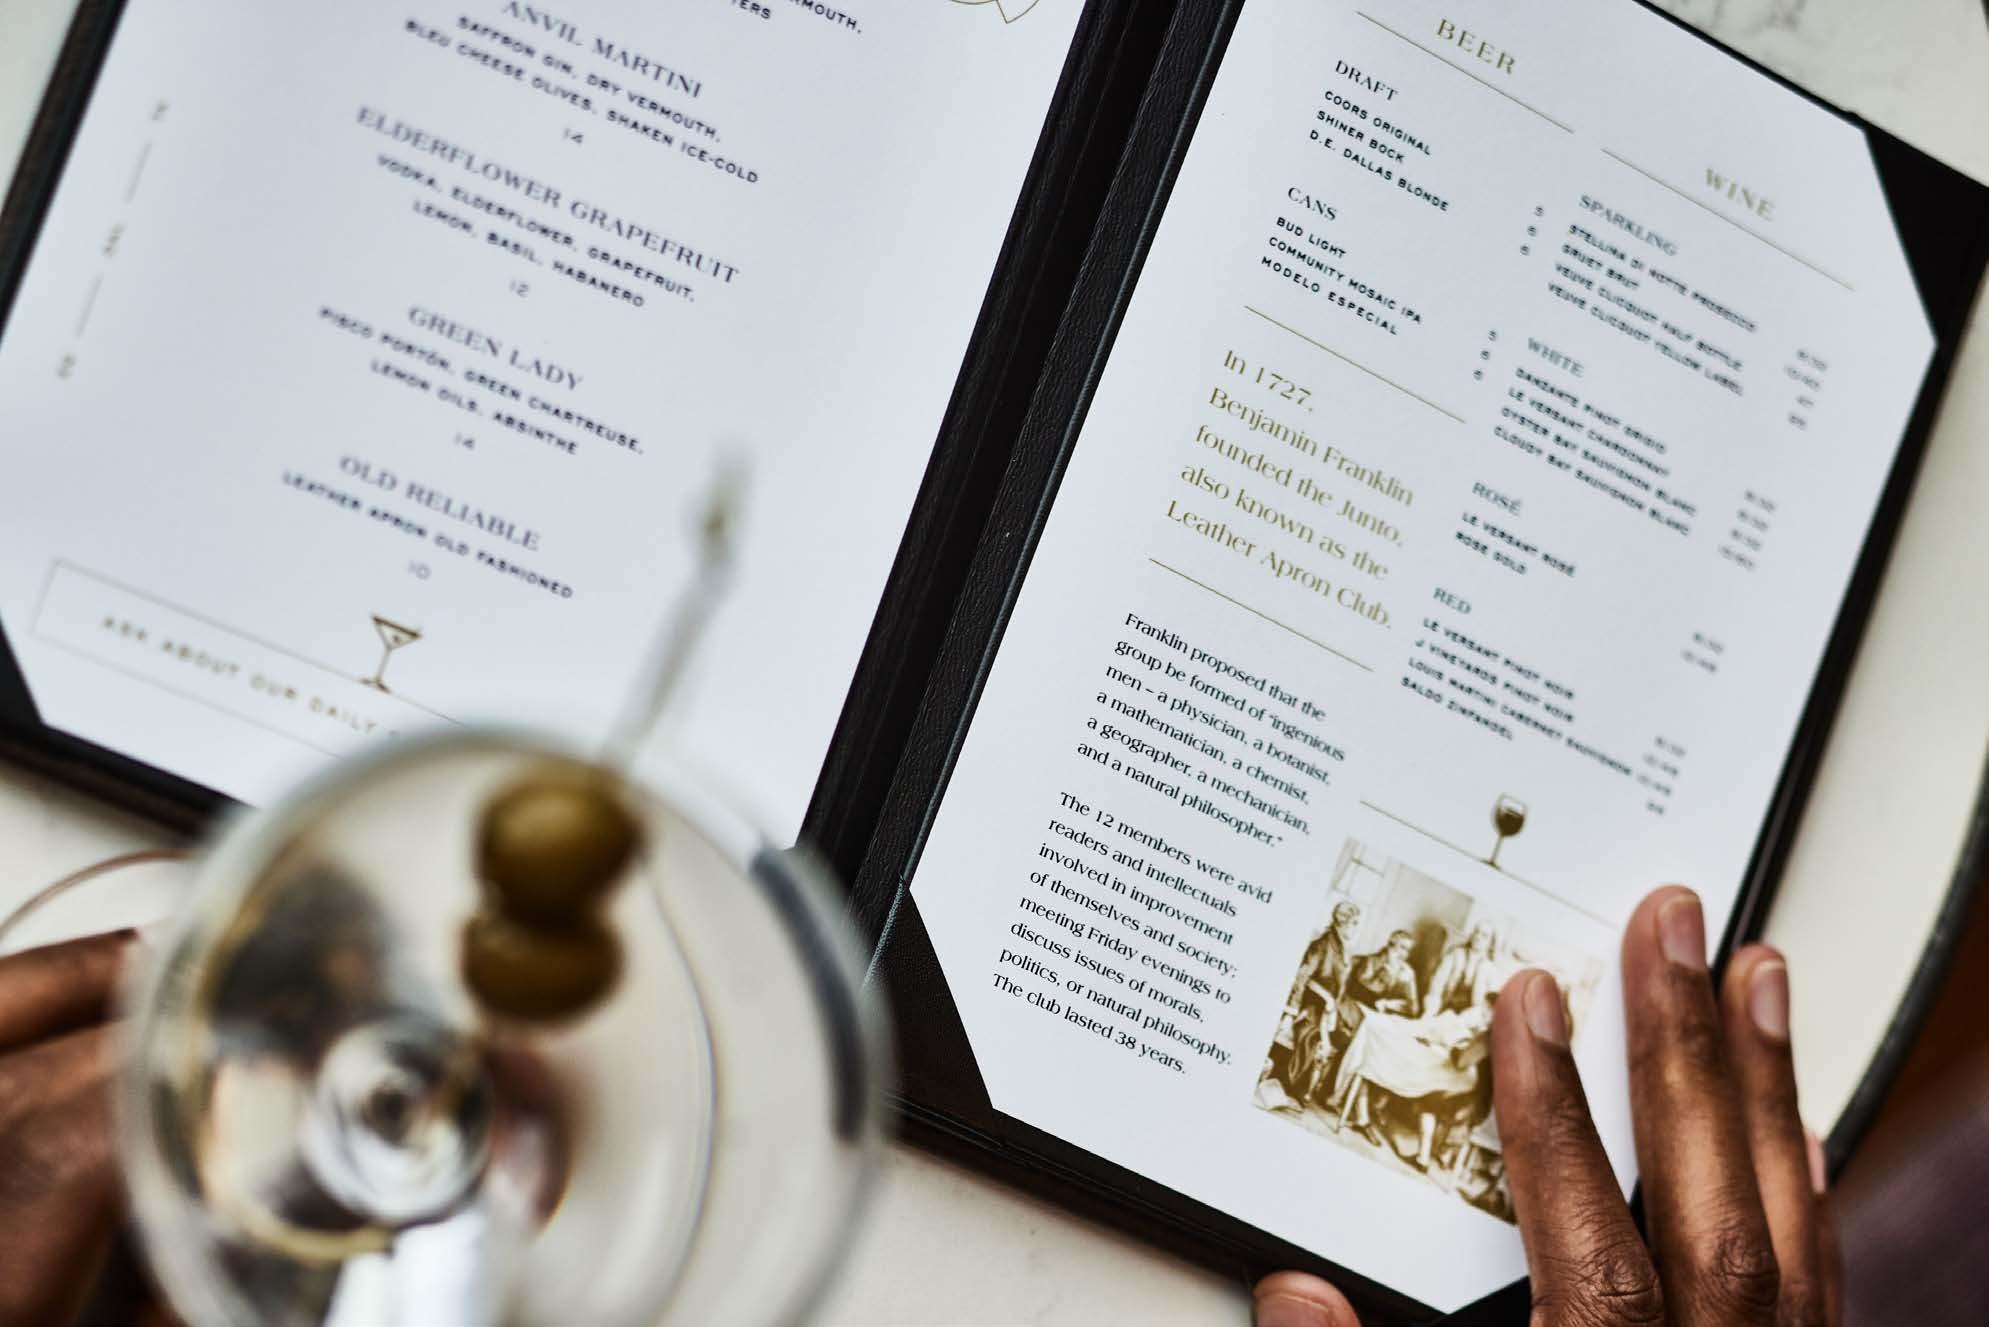 RMOUTH,
TERS
ANVIL MARTINI
SAFFRON GIN, DRY VERMOUTH,
BLEU CHEESE OLIVES, SHAKEN ICE-COLD
14
ELDERFLOWER GRAPEFRUIT
VODKA, ELDERFLOWER, GRAPEFRUIT,
LEMON, BASIL, HABANERO
12
GREEN LADY
PISCO PORTÓN, GREEN CHARTREUSE,
LEMON OILS, ABSINTHE
14
OLD RELIABLE
LEATHER APRON OLD FASHIONED
10
ASK ABOUT OUR DAILY
BEER
DRAFT
COORS ORIGINAL
SHINER BOCK
D.E. DALLAS BLONDE
5
6
6
CANS
BUD LIGHT
COMMUNITY MOSAIC IPA
MODELO ESPECIAL
5
6
6
In 1727,
Benjamin Franklin
founded the Junto,
also known as the
Leather Apron Club.
Franklin proposed that the
group be formed of "ingenious
men – a physician, a botanist,
a mathematician, a chemist,
a geographer, a mechanician,
and a natural philosopher."
The 12 members were avid
readers and intellectuals
involved in improvement
of themselves and society;
meeting Friday evenings to
discuss issues of morals,
politics, or natural philosophy.
The club lasted 38 years.
WINE
SPARKLING
STELLINA DI NOTTE PROSECCO
GRUET BRUT
VEUVE CLICQUOT HALF BOTTLE
VEUVE CLICQUOT YELLOW LABEL
WHITE
DANZANTE PINOT GRIGIO
LE VERSANT CHARDONNAY
OYSTER BAY SAUVIGNON BLANC
CLOUDY BAY SAUVIGNON BLANC
ROSÉ
LE VERSANT ROSÉ
ROSE GOLD
RED
LE VERSANT PINOT NOIR
J VINEYARDS PINOT NOIR
LOUIS MARTINI CABERNET SAUVIGNON
SALDO ZINFANDEL